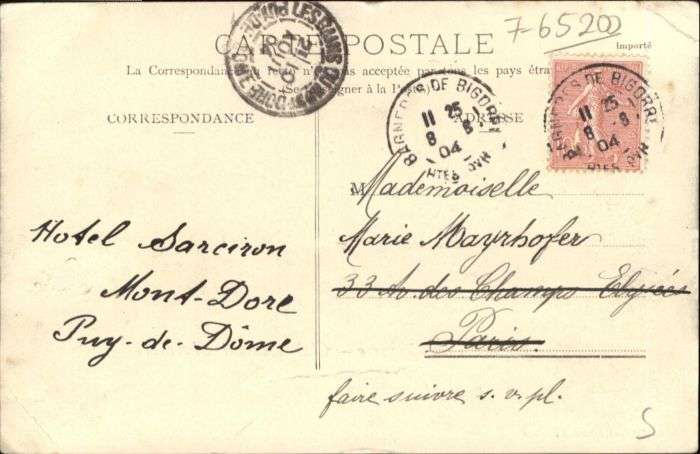 7-65200
CARTE POSTALE
Importé
La Correspondance au recto n'est pas acceptée par tous les pays
(Se renseigner à la Poste)
CORRESPONDANCE
ADRESSE
BAGNERES DE BIGORRE
11 25
8 8
04
HTES PYR
BAGNERES DE BIGORRE
11 25
8 8
04
HTES PYR
M
Mademoiselle
Marie Mayrhofer
33 Av. des Champs Elysées
Paris.
faire suivre s. v. pl.
Hotel Sarciron
Mont-Dore
Puy-de-Dôme
S